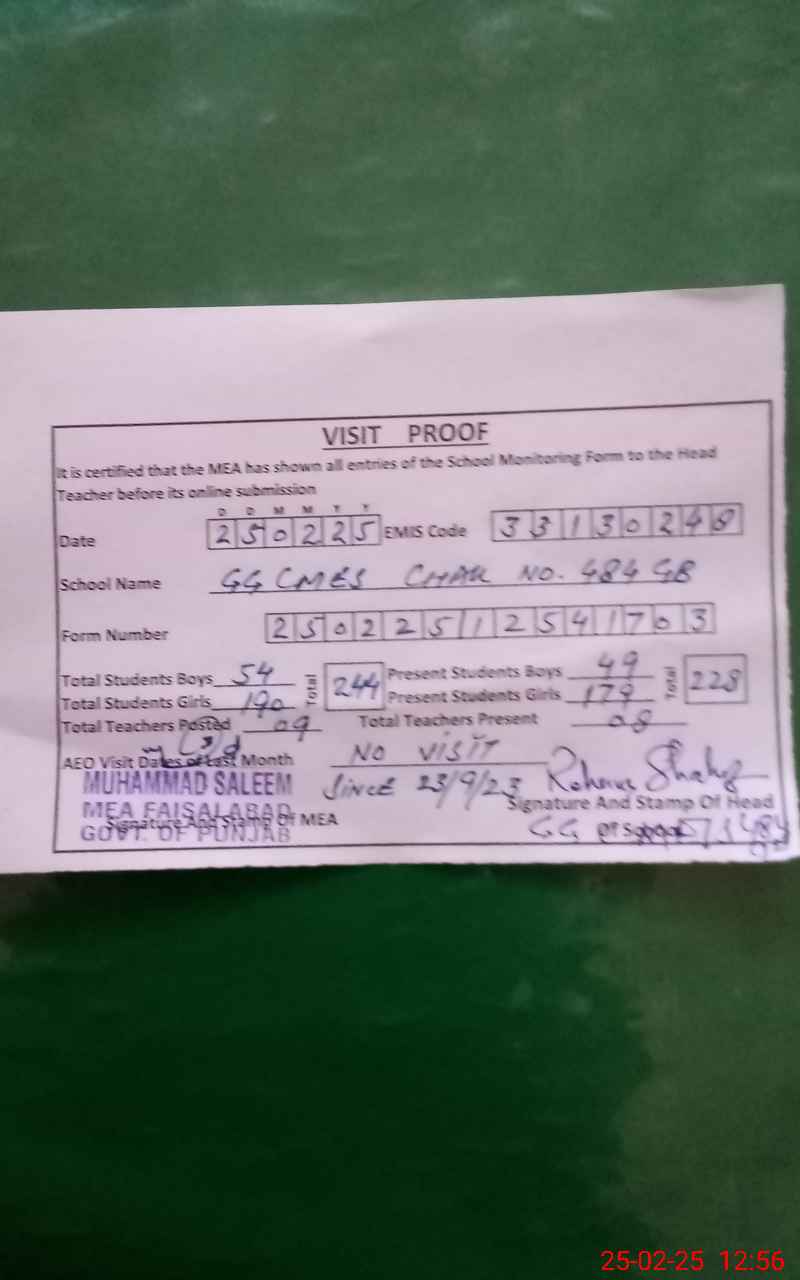 VISIT PROOF
It is certified that the MEA has shown all entries of the School Monitoring Form to the Head
Teacher before its online submission
D D M M Y Y
Date 250225 EMIS Code 33130248
School Name GG CMES CHAK NO. 484 GB
Form Number 25022512541703
Total Students Boys 54 Total 244 Present Students Boys 49 Total 228
Total Students Girls 190 Present Students Girls 179
Total Teachers Posted 09 Total Teachers Present 08
AEO Visit Dates of Last Month NO VISIT
Since 23/9/23
MUHAMMAD SALEEM
MEA FAISALABAD
GOVT. OF PUNJAB
Signature And Stamp Of MEA
Signature And Stamp Of Head
Of School
25-02-25 12:56